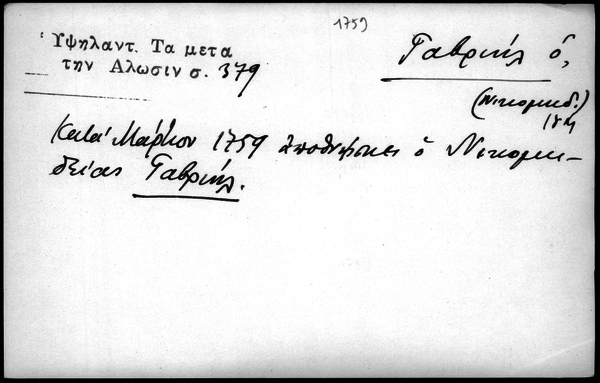 1759
Ὑψηλαντ. Τα μετα
την Αλωσιν σ. 379
Γαβριήλ ὁ,
(Νικομηδ.)
Κατά Μάρτιον 1759 ἀποθνήσκει ὁ Νικομη-
δείας Γαβριήλ.